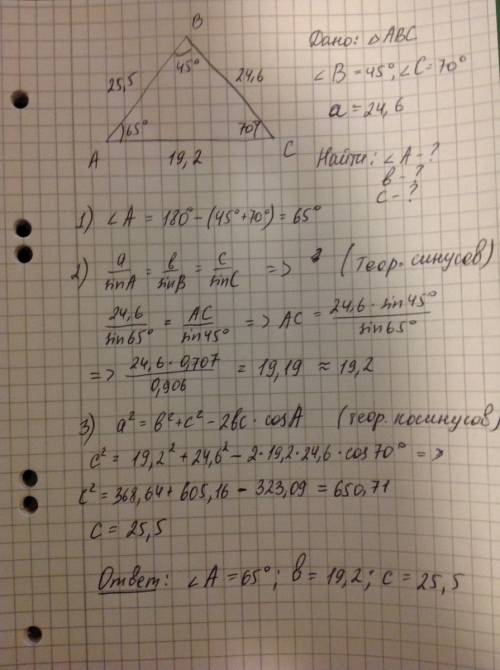 B
Дано: △ABC
25,5 45° 24,6
∠B = 45°, ∠C = 70°
a = 24,6
65° 70°
A 19,2 C
Найти: ∠A - ?
в - ?
c - ?
1) ∠A = 180° - (45° + 70°) = 65°
2) a/sinA = в/sinB = c/sinC => (теор. синусов)
24,6/sin65° = AC/sin45° => AC = 24,6 · sin45°/sin65°
=> 24,6 · 0,707/0,906 = 19,19 ≈ 19,2
3) a² = в² + c² - 2вc · cosA (теор. косинусов)
c² = 19,2² + 24,6² - 2 · 19,2 · 24,6 · cos70° =>
c² = 368,64 + 605,16 - 323,09 = 650,71
c = 25,5
Ответ: ∠A = 65°; в = 19,2; c = 25,5